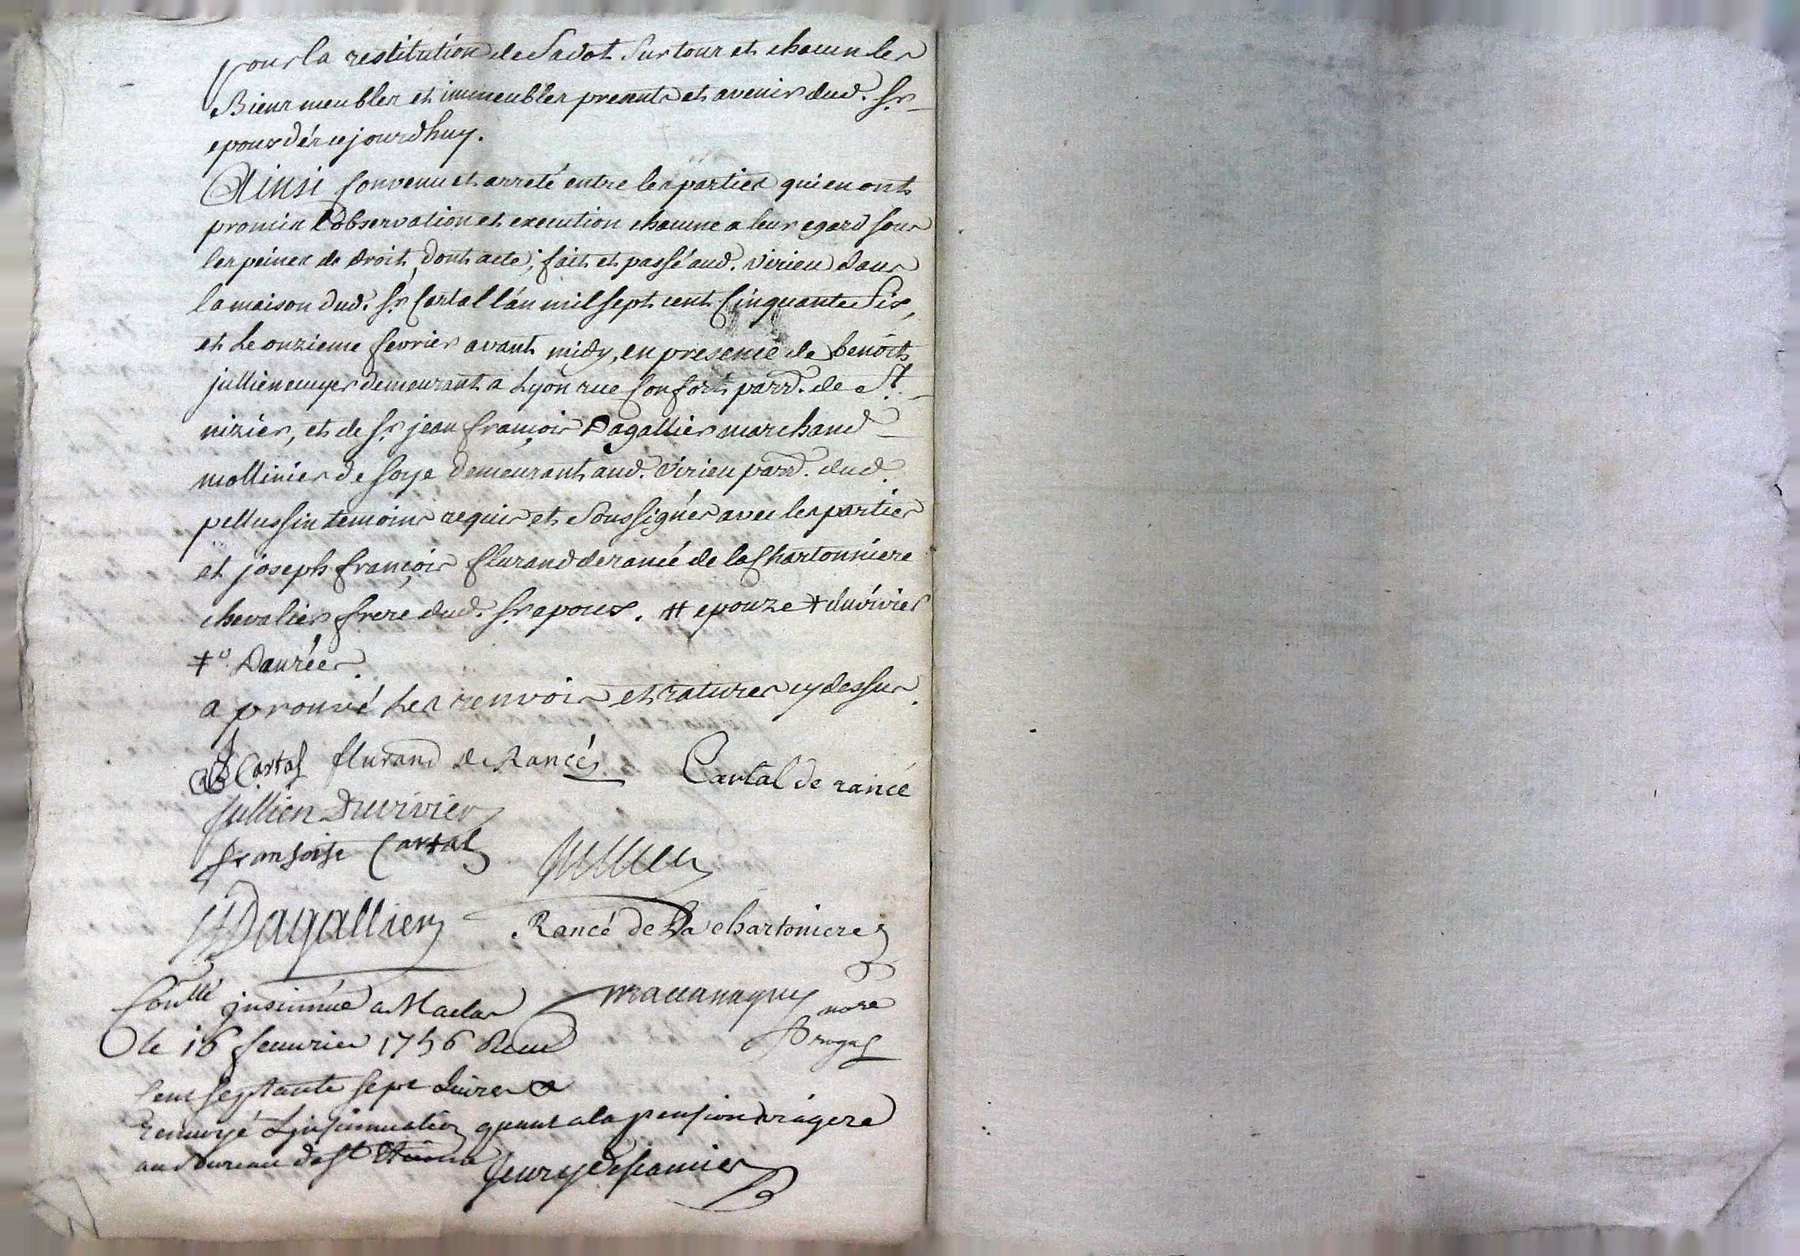 pour la restitution de sa dot sur tous et chacun les
Biens meubles et immeubles presents et avenir dud. Sr
epoux dés cejourdhuy.
Ainsi convenu et arreté entre les parties qui en ont
promis l'observation et execution chacune a leur egard sous
les peines de droit, dont acte, fait et passé aud. Virieu dans
la maison dud. Sr Cartal l'an mil sept cent cinquante six,
et le onzieme fevrier avant midy, en presence de benoit
jullien ecuyer demeurant a Lyon rue Confort parr. de St.
nizier, et de Sr jean françois Dagallier marchand
mollinier de soye demeurant aud. Virieu parr. dud.
pellussin temoins requis et soussignés avec les parties
et joseph françois flurand de rancé de la Chartonniere
chevalier frere dud. Sr epoux. # epouze + duvivier
+o Danrées
aprouvé les renvois et ratures cy dessus.
Cartal flurand de Rancé Cartal de rancé
Jullien Duvivier
fransoise Cartal Jullien
Dagallier Rancé de La chartoniere
Conlle insinué a Maclas
nore
le 16 feuvrier 1756 Recu
cent septante sept livres
Renvoyé Linsinuation quant a la pension viagere
au bureau de St Etienne